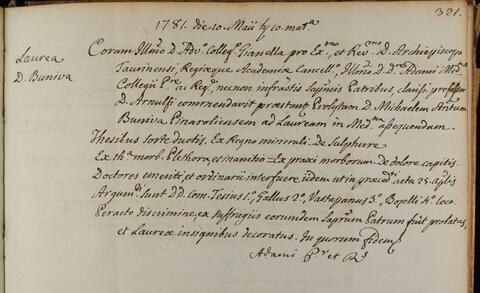 321.
1781. die 10. Maii h. 10. mat.a
Laurea
D. Buniva
Coram Illmo D. Adv.o Colleg.o Gianella pro Ex.mo, et Rev.mo D. Archiepiscopo
Taurinensi, Regiaeque Academiae Cancell.o Illmo D. D.no Adami Med.nae
Collegii P.re ac Reg.o, necnon infrastis Sap.mis Patribus, clariss. professor
D. Arnulfi commendavit praestant. Prolytam D. Michaelem Ant.um
Buniva Pinaroliensem ad Lauream in Med.na assequendam.
Thesibus sorte ductis. Ex Regno minerali: De Sulphure
Ex th.a morb. Plethora, et inanitio = Ex praxi morborum. De dolore capitis.
Doctores emeriti et ordinarii interfuere iidem ut in praeced.i acta 25. aplis
Argum.i sunt DD. Com. Tesius 1.o, Gallus 2.o, Vastapanus 3.o, Bojelli 4.o loco.
Peracto discrimine, ex suffragiis eorumdem Sap.rum Patrum fuit prolatus,
et Laureae insignibus decoratus. In quorum fidem
Adami P.r et R.s